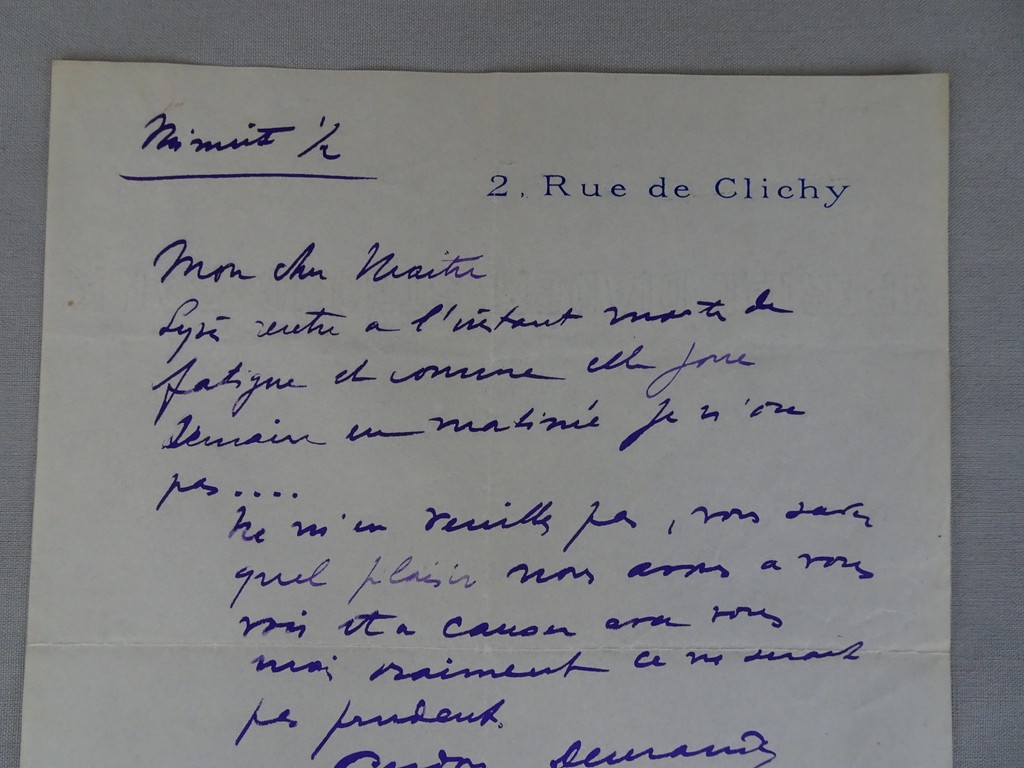 Minuit 1/2
2, Rue de Clichy
Mon cher Maitre
rentre a l'instant morte de
fatigue et comme elle joue
Demain en matinée je n'ose
pas....
Ne m'en veuillez pas, vous savez
quel plaisir nous avons a vous
voir et a causer avec vous
mais vraiment ce ne serait
pas prudent.